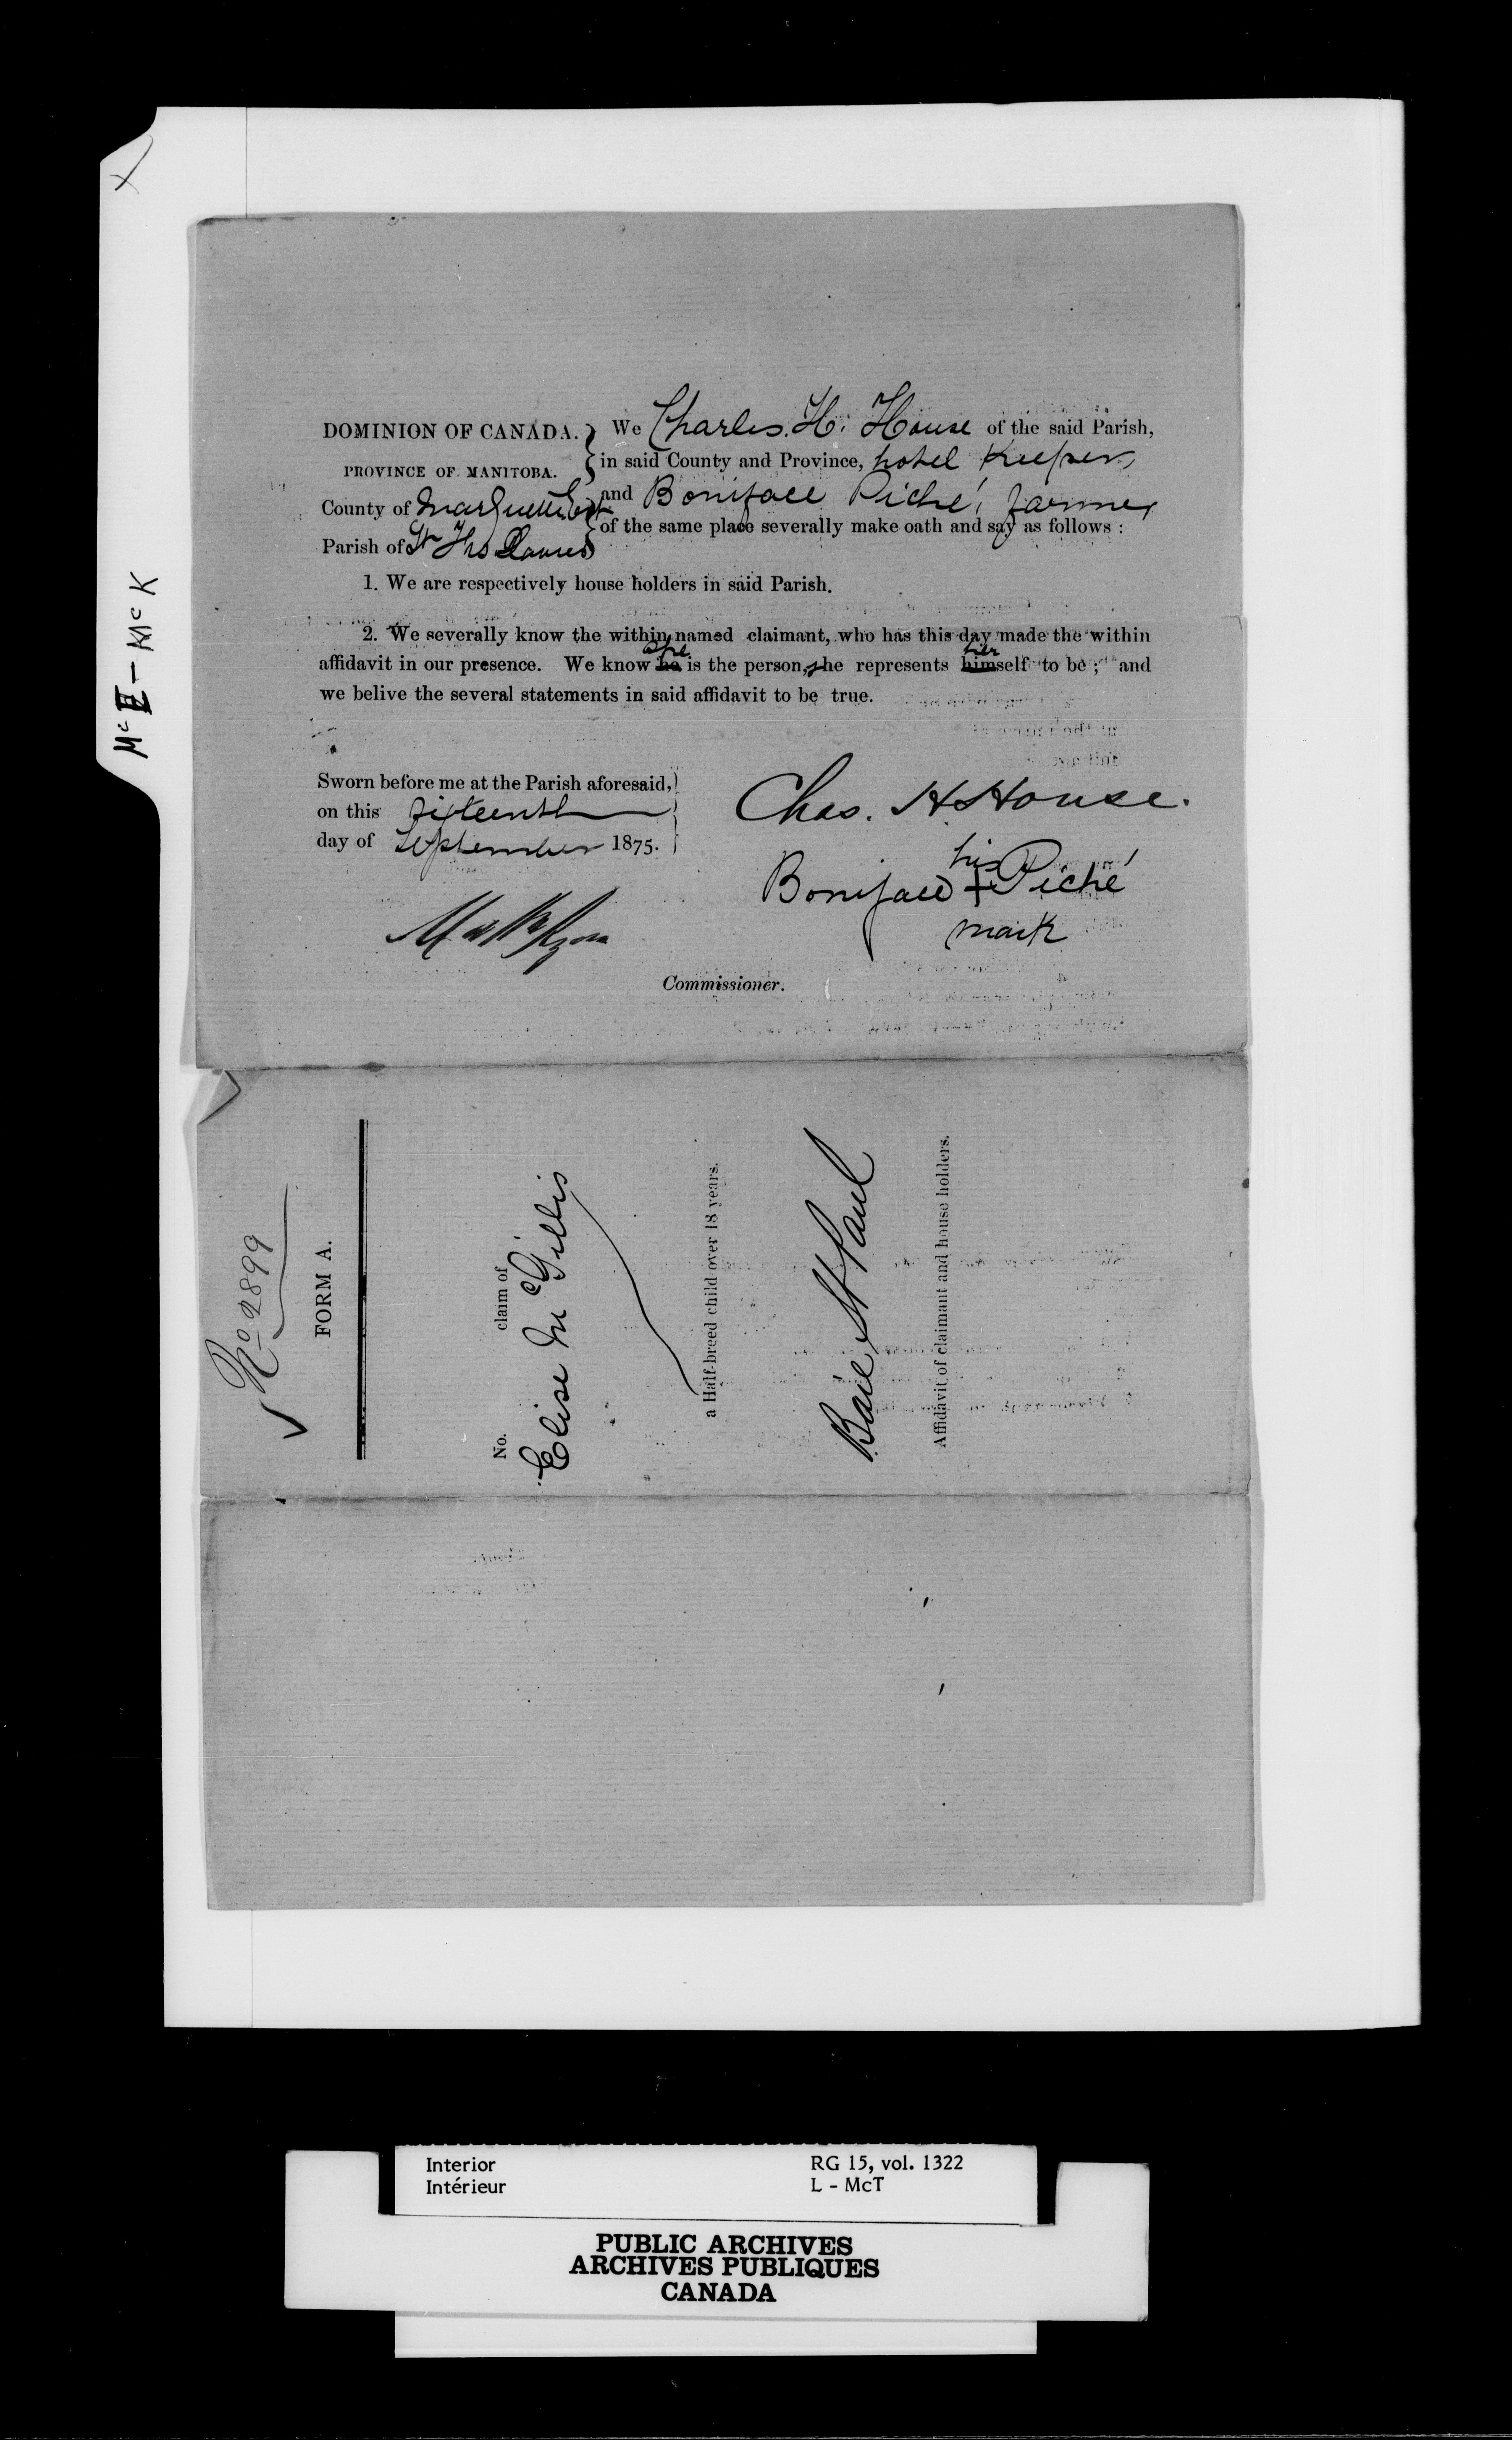 DOMINION OF CANADA.
PROVINCE OF MANITOBA.
County of Marquette Est
Parish of St Frs Xavier
We Charles. H. House of the said Parish,
in said County and Province, hotel Keeper,
and Boniface Piché, farmer
of the same place severally make oath and say as follows :
1. We are respectively house holders in said Parish.
2. We severally know the within named claimant, who has this day made the within
affidavit in our presence. We know he she is the person, she represents him herself to be ; and
we belive the several statements in said affidavit to be true.
Sworn before me at the Parish aforesaid,
on this fifteenth
day of September 1875.
Chas. H House.
his
Boniface + Piché
mark
Commissioner.
No 2899
FORM A.
No. claim of
Elise McGillis
a Half-breed child over 18 years.
Baie St Paul
Affidavit of claimant and house holders.
X
Mc - McK
Interior
Intérieur
RG 15, vol. 1322
L - McT
PUBLIC ARCHIVES
ARCHIVES PUBLIQUES
CANADA